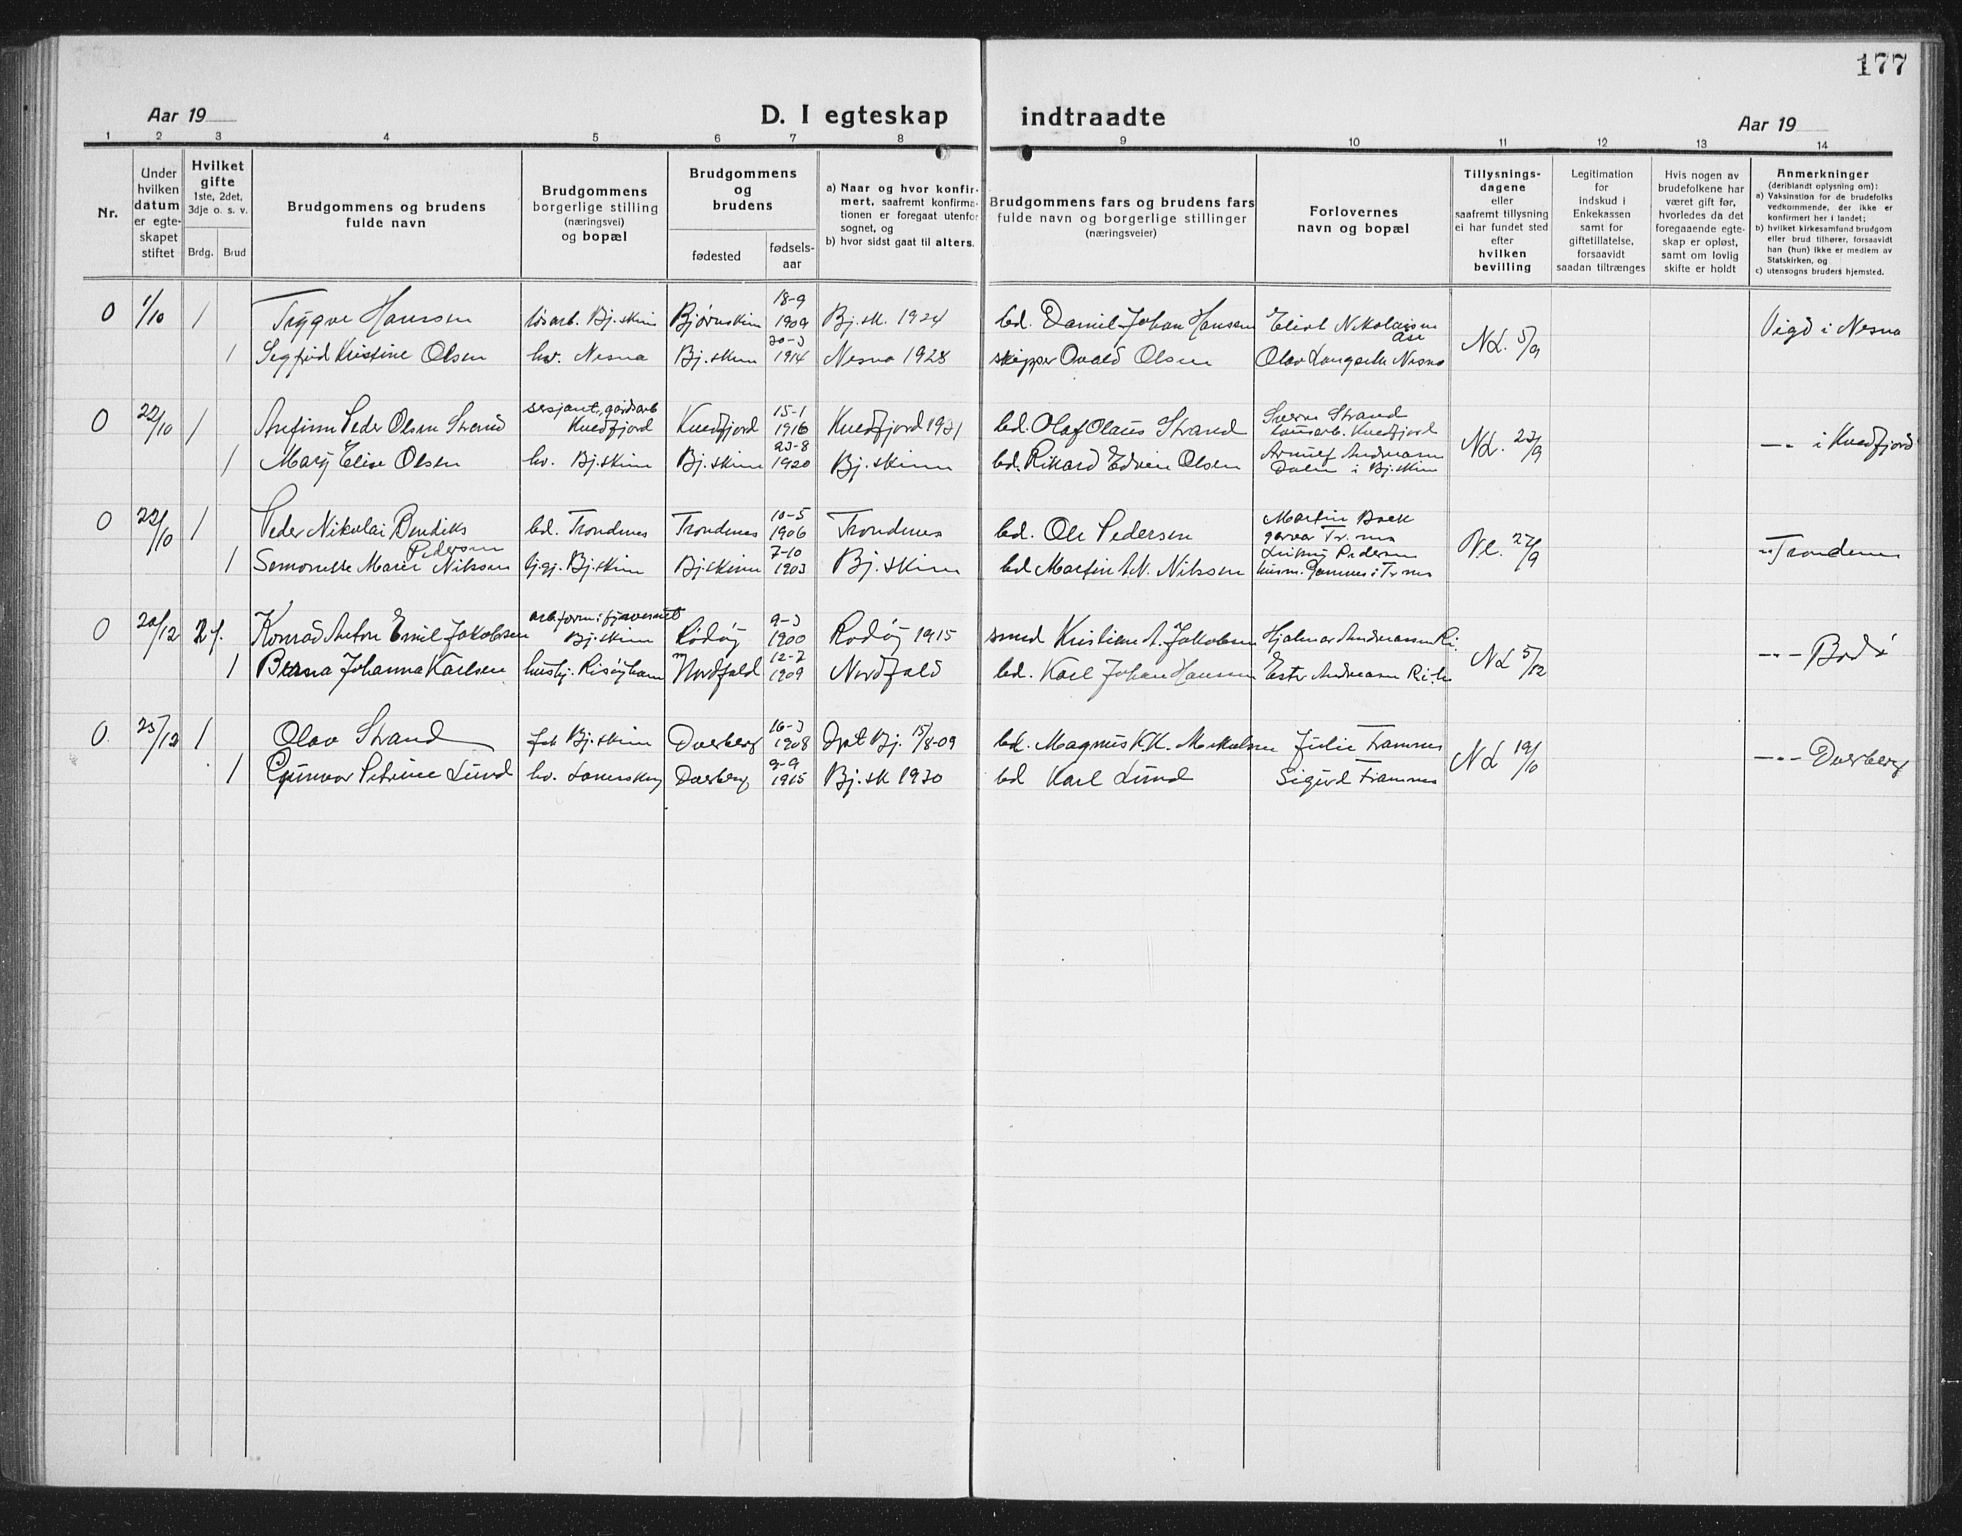 177
Aar 19
D. I egteskap indtraadte
Aar 19
1 2 3 4 5 6 7 8 9 10 11 12 13 14
Nr.
Under hvilken datum er egte-skapet stiftet
Hvilket gifte
1ste, 2det, 3dje o. s. v.
Brdg. Brud
Brudgommens og brudens fulde navn
Brudgommens borgerlige stilling (næringsvei) og bopæl
Brudgommens og brudens
fødested
fødsels-aar
a) Naar og hvor konfir-mert, saafremt konfirma-tionen er foregaat utenfor sognet, og
b) hvor sidst gaat til alters.
Brudgommens fars og brudens fars fulde navn og borgerlige stillinger (næringsveier)
Forlovernes navn og bopæl
Tillysnings-dagene eller saafremt tillysning ei har fundet sted efter hvilken bevilling
Legitimation for indskud i Enkekassen samt for giftetillatelse, forsaavidt saadan tiltrænges
Hvis nogen av brudefolkene har været gift før, hvorledes da det foregaaende egte-skap er opløst, samt om lovlig skifte er holdt
Anmerkninger
(deriblandt oplysning om):
a) Vaksination for de brudefolks vedkommende, der ikke er konfirmert her i landet;
b) hvilket kirkesamfund brudgom eller brud tilhører, forsaavidt han (hun) ikke er medlem av Statskirken, og
c) utensogns bruders hjemsted.
0 1/10 1 Trygve Hansen løsarb. Bj.skinn Bjørnskinn 18-9 1909 Bj.sk. 1924 bd. Daniel Johan Hansen Eliot Nikolaisen Åse
1 Segfrid Kristine Olsen hv. Nesna Bj.skinn 20-3 1914 Nesna 1928 skipper Ovald Olsen Olav Nesna Nd. 5/9 Vigd i Nesna
0 22/10 1 Arnfinn Peder Olsen Strand sersjant, gårdsarb Kvedfjord Kvedfjord 15-1 1916 Kvedfjord 1931 bd. Olaf Olaus Strand Sverre Strand Kvedfjord
1 Mary Elise Olsen hv. Bj.skinn Bj.skinn 23-8 1920 Bj.skinn bd. Rikard Edvin Olsen Arnulf Andreassen Dalen i Bj.skinn Nd. 23/9 -"- i Kvedfjord
0 22/10 1 Peder Nikolai Bendiks Pedersen bd. Trondenes Trondenes 10-5 1906 Trondenes bd. Ole Pedersen Martin Bock garver Tr.nes
1 Semonette Marie Nilssen tj.gj. Bj.skinn Bj.skinn 7-10 1903 Bj.skinn bd Martin A.N. Nilssen Pedersen i Tr.nes Nd. 27/9 -"- Trondenes
0 20/12 2 f. Konrad Anton Emil Jakobsen Bj.skinn Rødøy 9-3 1900 Rødøy 1915 smed Kristian A. Jakobsen Hjalmar Andreassen Ri.
1 Berna Johanna Karlsen husbj. Risøyhamn Nordfold 12-7 1909 Nordfold bd. Karl Johan Hansen Ester Andreassen Ri.h. Nd 5/12 -"- Bodø
0. 25/12 1 Olav Strand Bj.skinn Dverberg 16-3 1908 Døpt Bj. 15/8-09 bd. Magnus K.K. Mikalsen Julie Framnes
1 Gunvor Petrine Lund hv. Dverberg 9-9 1915 Bj.sk 1930 bd Karl Lund Sigurd Framnes Nd 19/10 -"- Dverberg